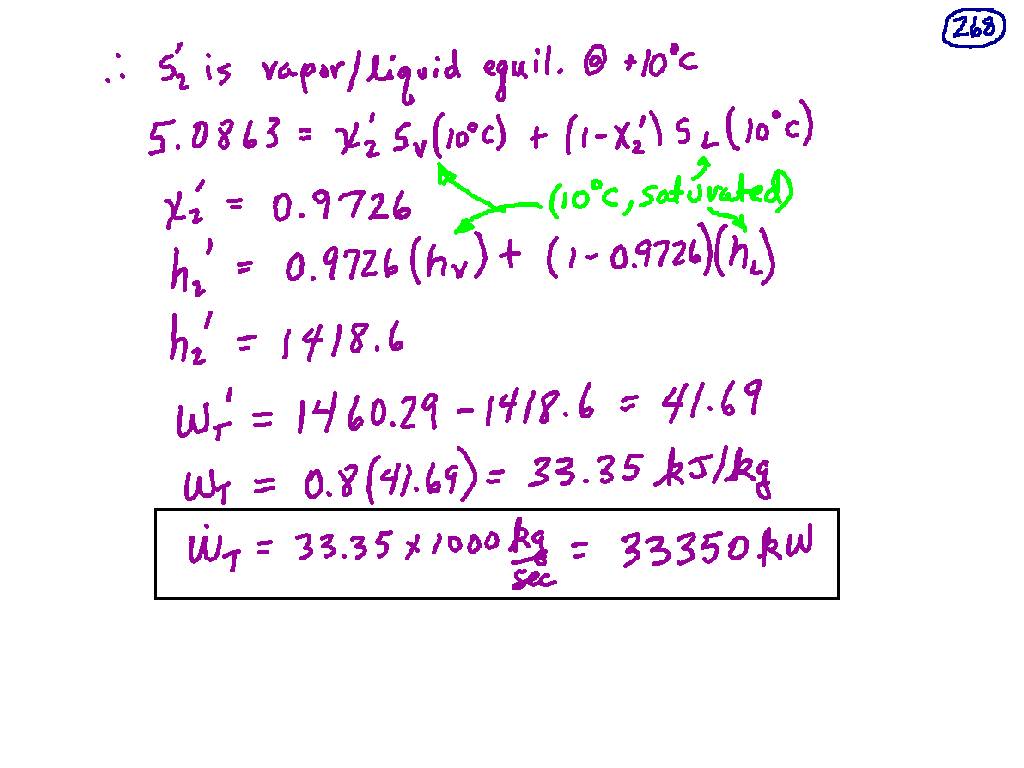 268
∴ S₂' is vapor/liquid equil. @ +10°C
5.0863 = χ₂' Sᵥ(10°C) + (1-χ₂') S_L(10°C)
(10°C, saturated)
χ₂' = 0.9726
h₂' = 0.9726(hᵥ) + (1-0.9726)(h_L)
h₂' = 1418.6
W_T' = 1460.29 - 1418.6 = 41.69
W_T = 0.8(41.69) = 33.35 kJ/kg
Ẇ_T = 33.35 × 1000 kg/sec = 33350 kW